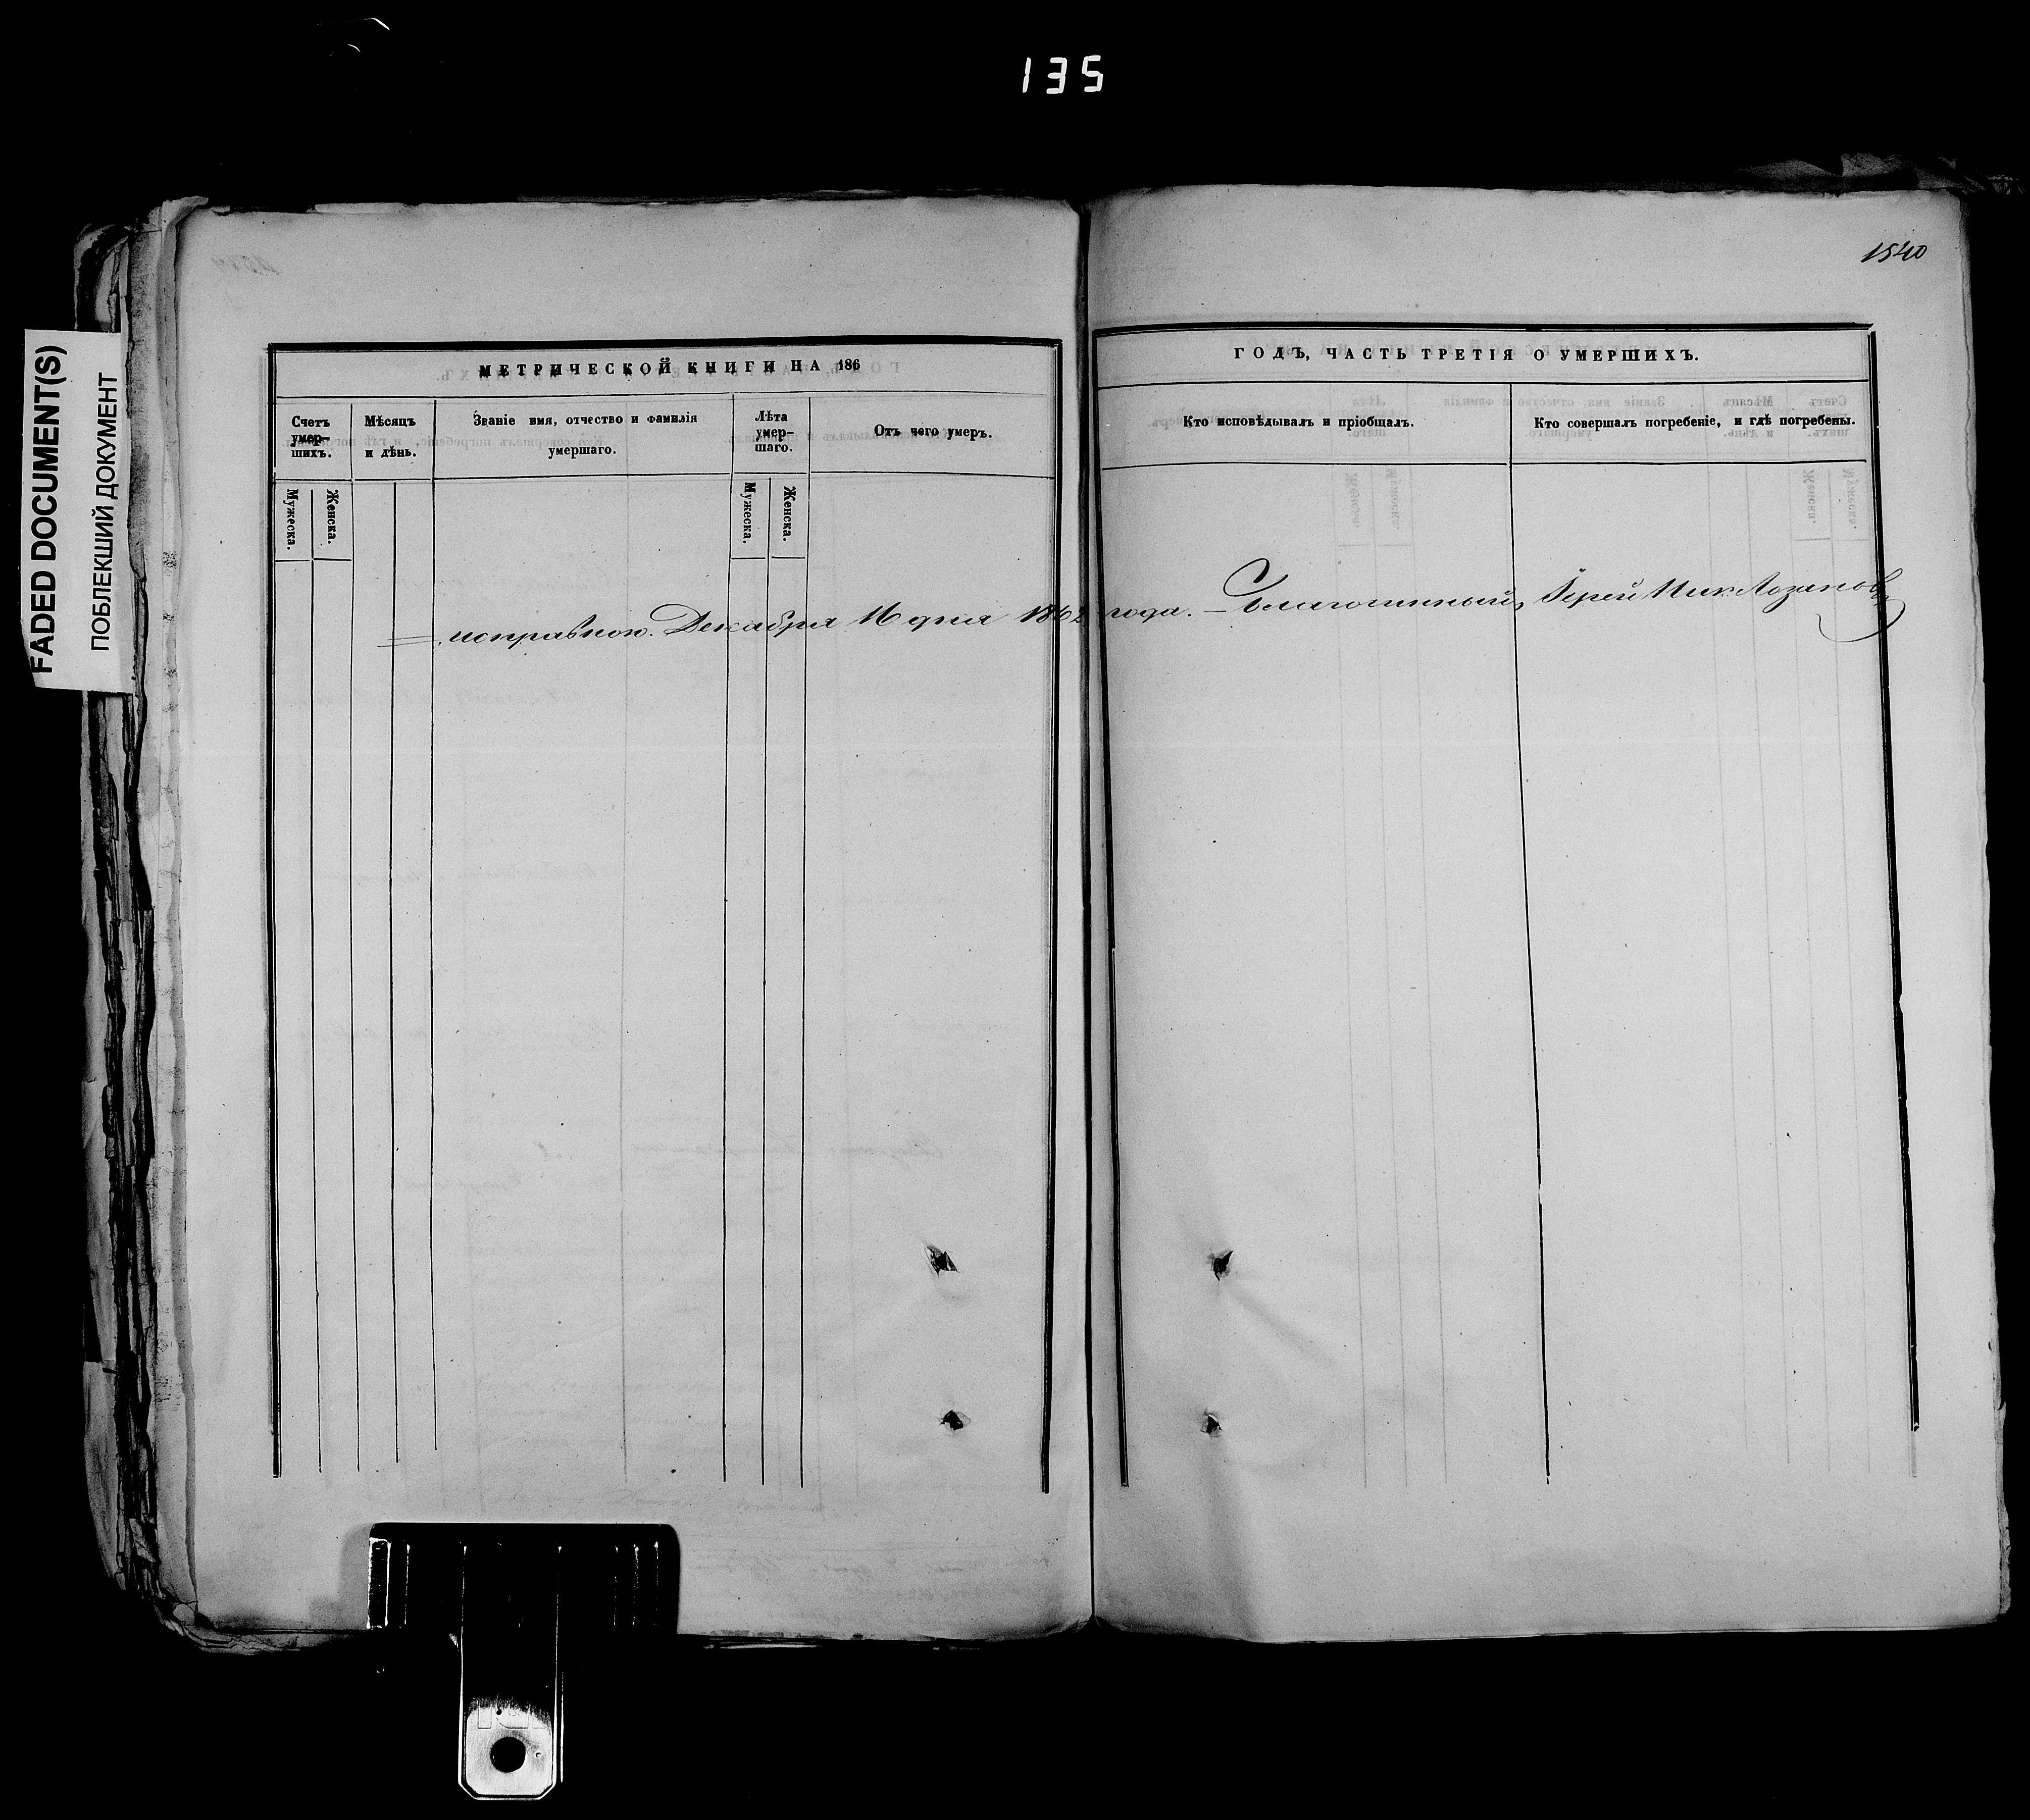 135
FADED DOCUMENT(S)
ПОБЛЕКШИЙ ДОКУМЕНТ
1540
МЕТРИЧЕСКОЙ КНИГИ НА 186
ГОДЪ, ЧАСТЬ ТРЕТІЯ О УМЕРШИХЪ.
Счетъ умер-шихъ.
Мѣсяцъ и дѣнь.
Званіе имя, отчество и фамилія умершаго.
Лѣта умер-шаго.
Отъ чего умеръ.
Кто исповѣдывалъ и пріобщалъ.
Кто совершалъ погребеніе, и гдѣ погребены.
Мужеска.
Женска.
Мужеска.
Женска.
исправною. Декабря 16 дня 1862 года. — Благочинный, Іерей Ник Лозановъ